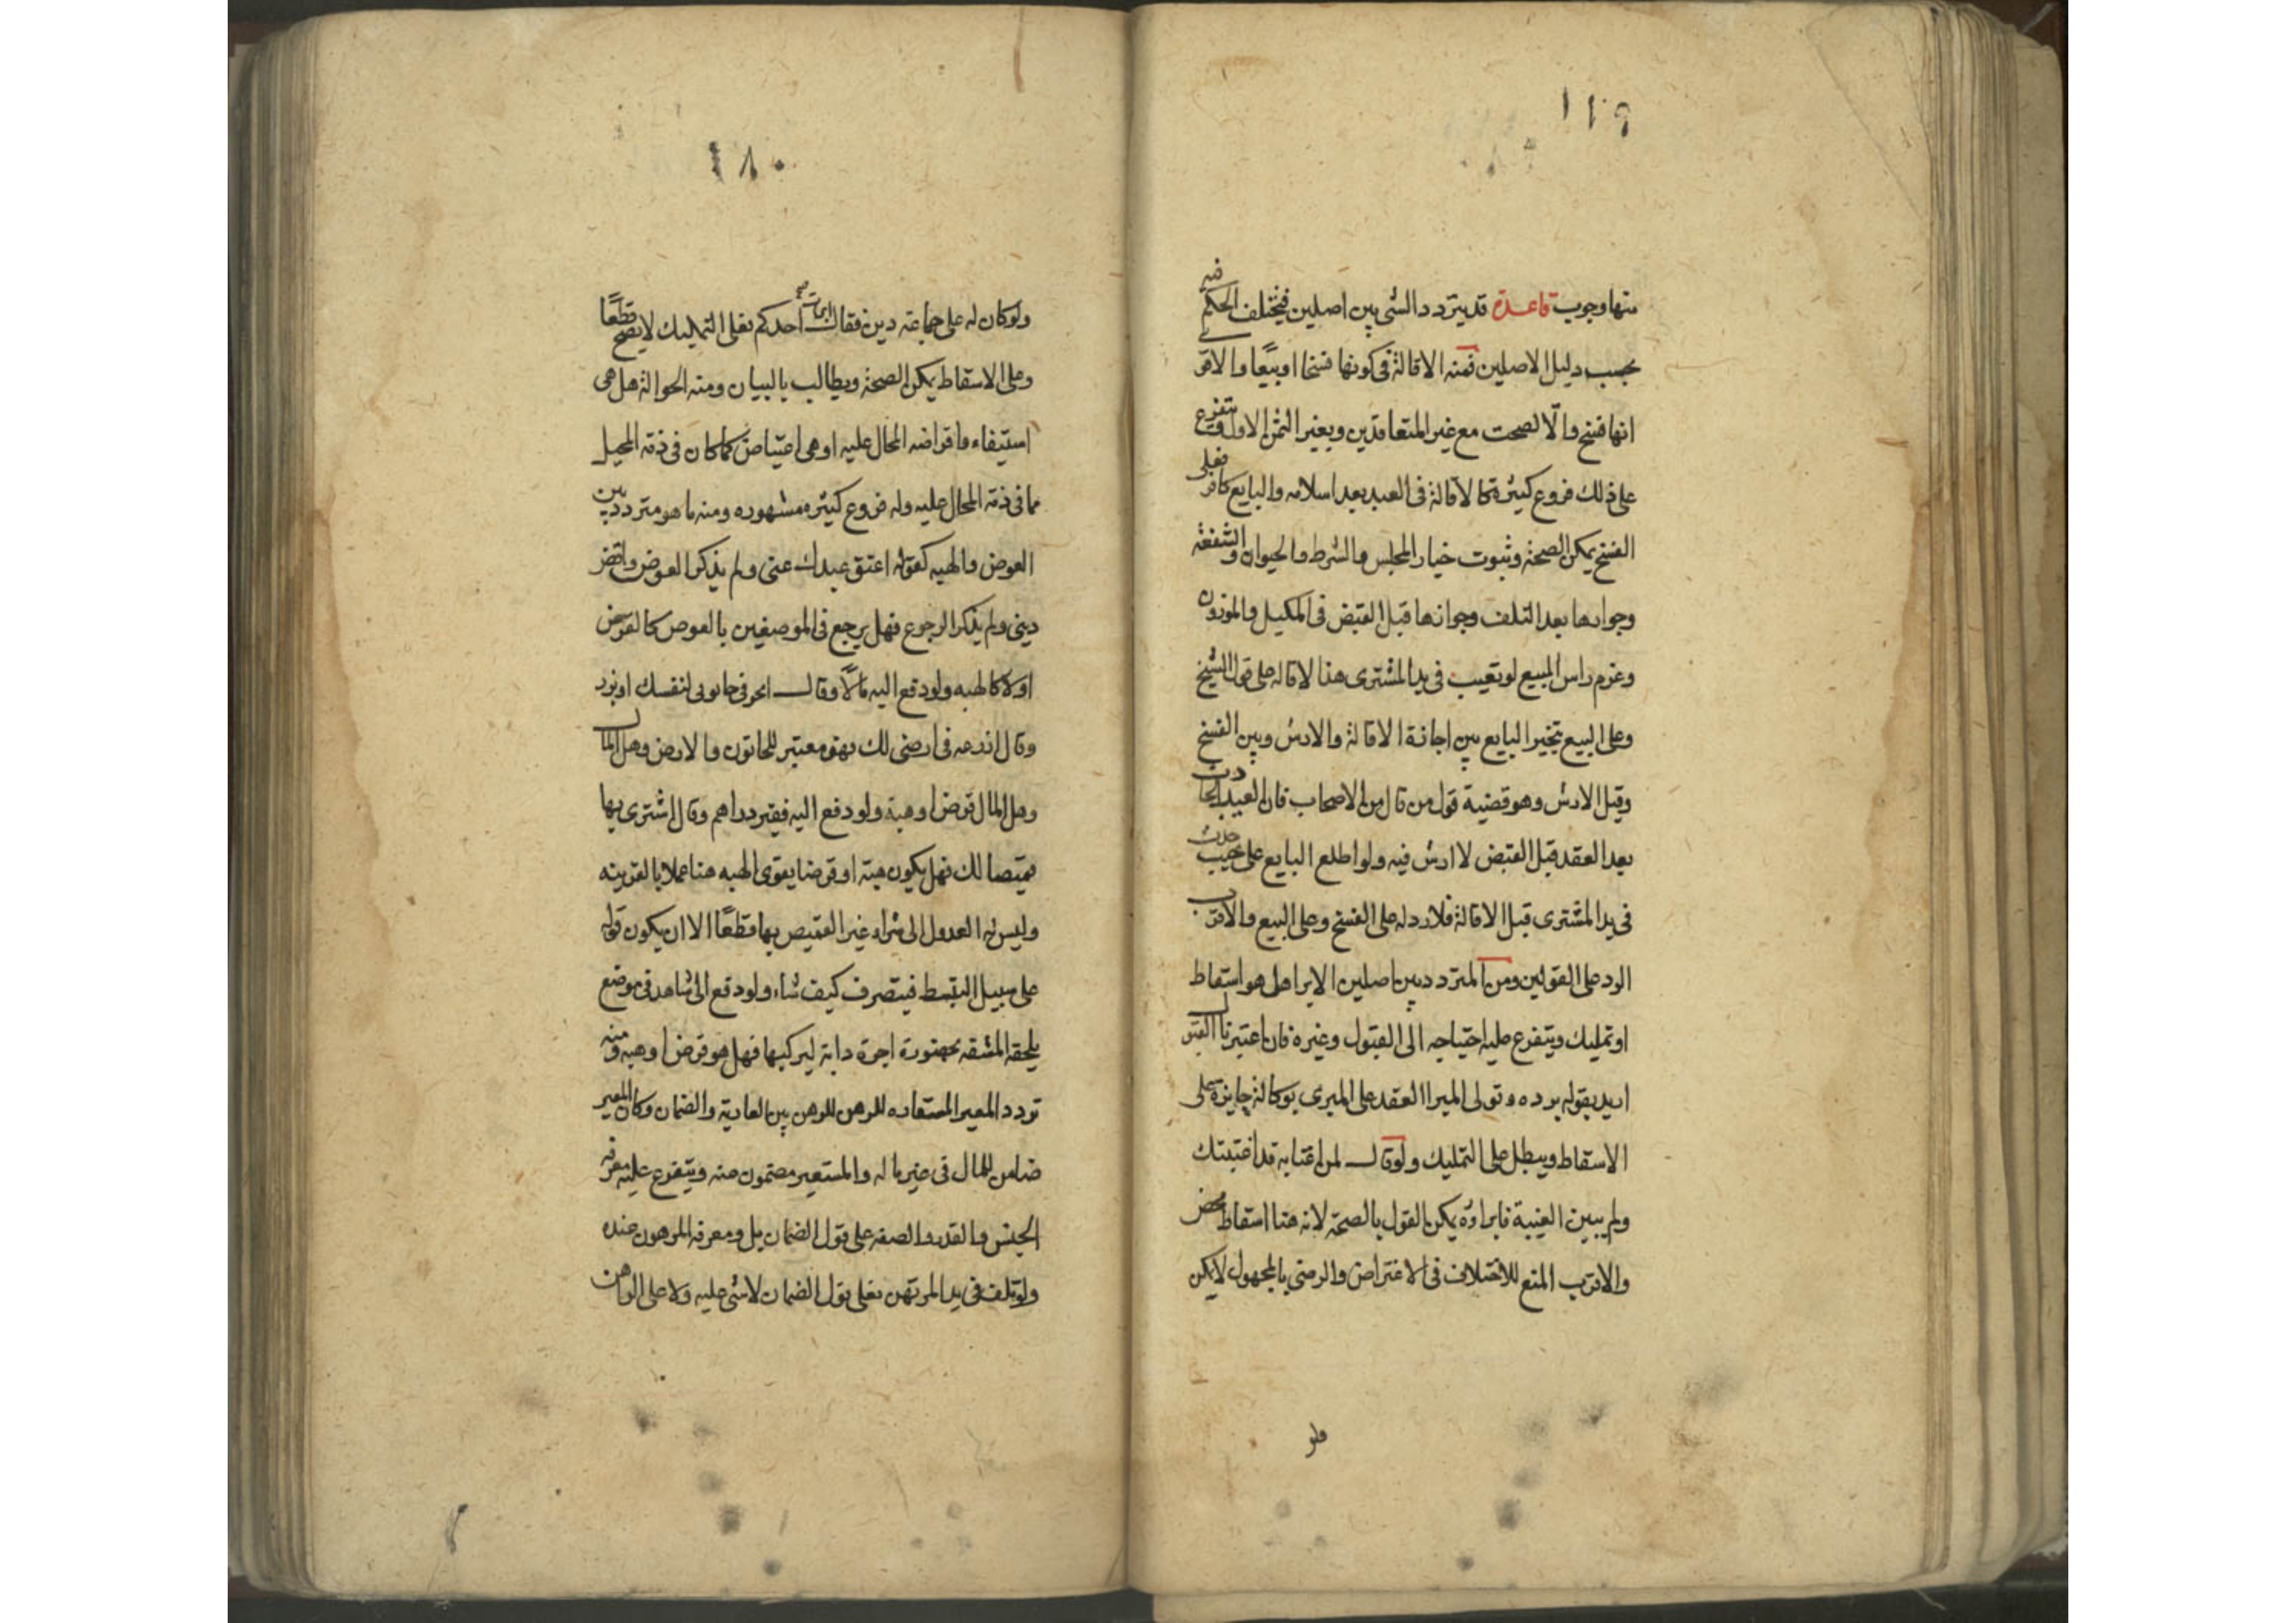 منها وجوب قاعدة قد يتردد الشى بين اصلين فيختلف الحكم فيه
بحسب دليل الاصلين فمنه الاقالة فى كونها فسخا او بيعًا والاقر
انها فسخ والّا لصحت مع غير المتعاقدين وبغير الثمن الاول ويتفرع
على ذلك فروع كثيرة كالاقالة فى العبد بعد اسلامه والبايع كافر فعلى
الفسخ يمكن الصحة وثبوت خيار المجلس والشرط والحيوان والشفعة
وجوازها بعد التلف وجوازها قبل القبض فى المكيل والموزون
وغرم راس المبيع لو تعيب فى يد المشترى هذا لاقاله على قول الشيخ
وعلى البيع يتخير البايع بين اجازة الاقالة والارش وبين الفسخ
وقبل الارش وهو قضية قول من قال من الاصحاب فان العيب الحادث
بعد العقد قبل القبض لا ارش فيه ولو اطلع البايع على عيب حدث
فى يد المشترى قبل الاقالة فلا رد له على الفسخ وعلى البيع والاقرب
الرد على القولين ومن المتردد بين اصلين الابرا هل هو اسقاط
او تمليك ويتفرع عليه احتياجه الى القبول وغيره فان اعتبرنا القبول
ارتد بقوله برده وتولى المبرا العقد على المبرى بوكالة جايزة على
الاسقاط ويبطل على التمليك ولو قال لمن اغتابه قد اغتبتك
ولم يبين الغيبة فابراؤه يمكن القول بالصحة لانه هنا اسقاط محض
والاقرب المنع للاختلاف فى الاغتراض والرضى بالمجهول لا يمكن
ولو
١٨٠
ولو كان له على جماعته دين فقال ابرات احدكم فعلى التمليك لا يصح قطعًا
وعلى الاسقاط يمكن الصحة ويطالب بالبيان ومنه الحوالة هل هى
استيفاء واقراضه المحال عليه او هى اعتياض كما كان فى ذمة المحيل
مما فى ذمة المحال عليه وله فروع كثيره مشهوره ومنه ما هو متردد بين
العوض والهبه كقوله اعتق عبدك عنى ولم يذكر العوض واقض
دينى ولم يذكر الرجوع فهل يرجع فى الموضعين بالعوض كالقرض
او لا كالهبه ولو دفع اليه مالًا وقال اتجر فى حانوتى لنفسك او بذر
وقال ازرعه فى ارضى لك فهو معتبر للحانوت والارض وهل المال
وهل المال قرض او هبة ولو دفع اليه فقير دراهم وقال اشترى بها
قميصا لك فهل يكون هبة او قرضا يقوى الهبه هنا عملا بالقرينه
وليس له العدول الى شراء غير القميص بها قطعًا الا ان يكون قوله
على سبيل التبسط فيتصرف كيف شاء ولو دفع الى شاهد فى موضع
يلحقه المشقه بحضوره اجرة دابة ليركبها فهل هو قرض او هبه ومنه
تردد المعير المستعاره للرهن للرهن بين العارية والضمان وكان المعير
ضامن للمال فى عين ماله والمستعير مضمون عنه ويتفرع عليه معرفه
الجنس والقدر والصفه على قول الضمان بل ومعرفه المرهون عنده
ولو تلف فى يد المرتهن فعلى قول الضمان لا شى عليه ولا على الراهن